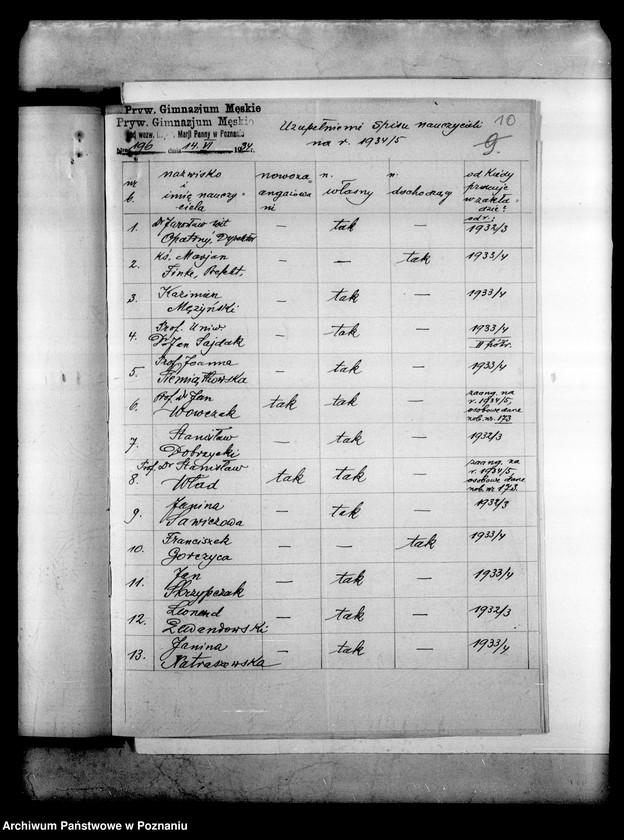 Pryw. Gimnazjum Męskie
Pryw. Gimnazjum Męskie
pod wezw. Marji Panny w Poznaniu
196 dnia 14. VI 1934.
Uzupełnienie spisu nauczycieli
na r. 1934/5
10
9.
nr b. nazwisko i imię nauczyciela nowozaangażowani n. własny n. dochodzący od kiedy pracuje w zakładzie? od r.:
1. dr Jarosław Wit Opatrny, Dyrektor — tak — 1932/3
2. Ks. Marjan Finke, Prefekt, — — tak 1933/4
3. Kazimierz Mężyński — tak — 1933/4
4. Prof. Uniw. Dr Jan Sajdak — tak — 1933/4 II półr.
5. Prof. Joanna Siemiątkowska — tak — 1933/4
6. Prof. dr Jan Wowczak tak tak — zaang. na r. 1934/5, osobowe dane nr. 173
7. Stanisław Dobrzycki — tak — 1932/3
8. Prof. Dr Stanisław Wład tak tak — zaang. na r. 1934/5 osobowe dane nr 173.
9. Janina Sawiczowa — tak — 1932/3
10. Franciszek Gorczyca — — tak 1933/4
11. Jan Skrzypczak — tak — 1933/4
12. Leonard Lewandowski — tak — 1932/3
13. Janina Natraszewska — tak — 1933/4
Archiwum Państwowe w Poznaniu